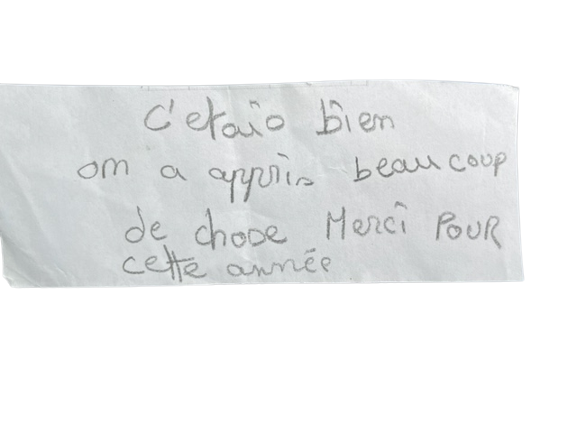 C'etais bien
on a appris beaucoup
de chose Merci POUR
cette année